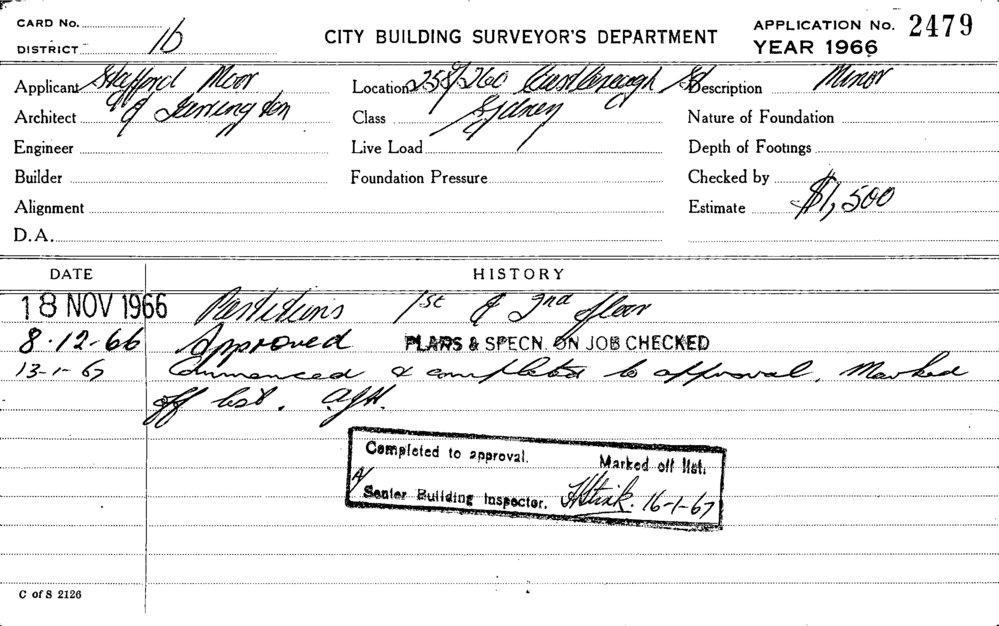 CARD No.
DISTRICT 16
CITY BUILDING SURVEYOR'S DEPARTMENT
APPLICATION No. 2479
YEAR 1966
Applicant Stafford Moor
Architect & Farrington
Engineer
Builder
Alignment
D.A.
Location 258/260 Castlereagh St
Class Sydney
Live Load
Foundation Pressure
Description Minor
Nature of Foundation
Depth of Footings
Checked by
Estimate $1,500
DATE HISTORY
18 NOV 1966 Partitions 1st & 2nd floor
8-12-66 Approved PLANS & SPECN. ON JOB CHECKED
13-1-67 Commenced & completed to approval. Marked
off list.
Completed to approval. Marked off list.
A/ Senior Building Inspector. 16-1-67
C of S 2126